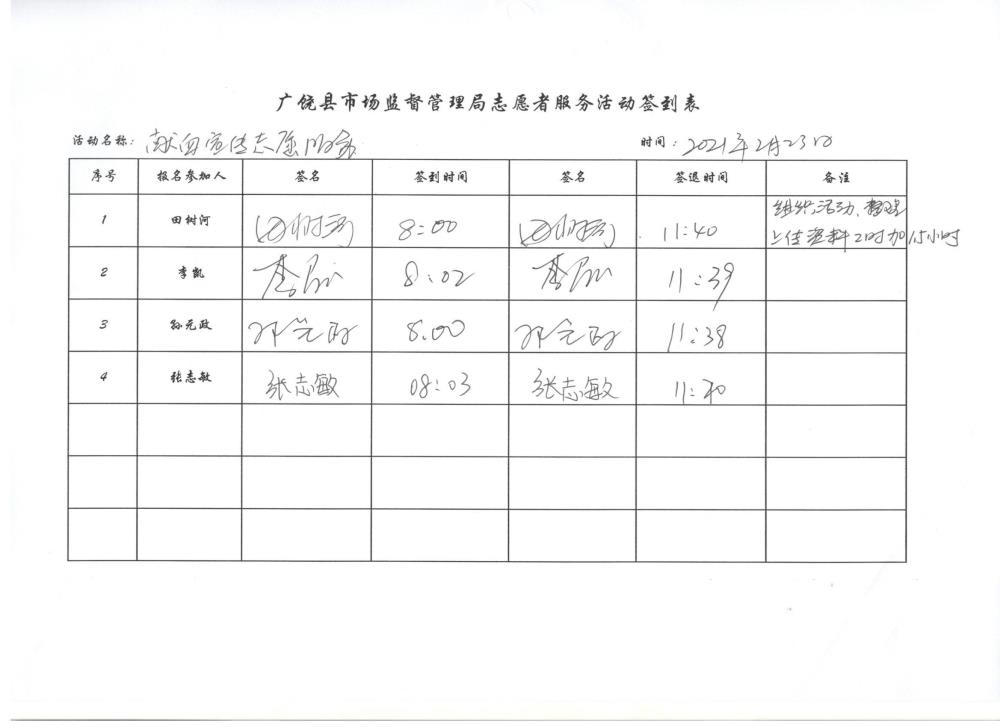 广饶县市场监督管理局志愿者服务活动签到表
活动名称：献血宣传志愿服务 时间：2021年2月23日
序号 报名参加人 签名 签到时间 签名 签退时间 备注
1 田树河 田树河 8:00 田树河 11:40 组织活动、整理
上传资料 时加1.5小时
2 李凯 李凯 8:02 李凯 11:39
3 孙元政 孙元政 8:00 孙元政 11:38
4 张志敏 张志敏 08:03 张志敏 11:40